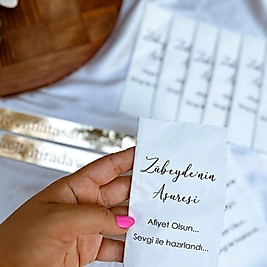 Zübeyde'nin
Aşuresi
Afiyet Olsun...
Sevgi ile hazırlandı...